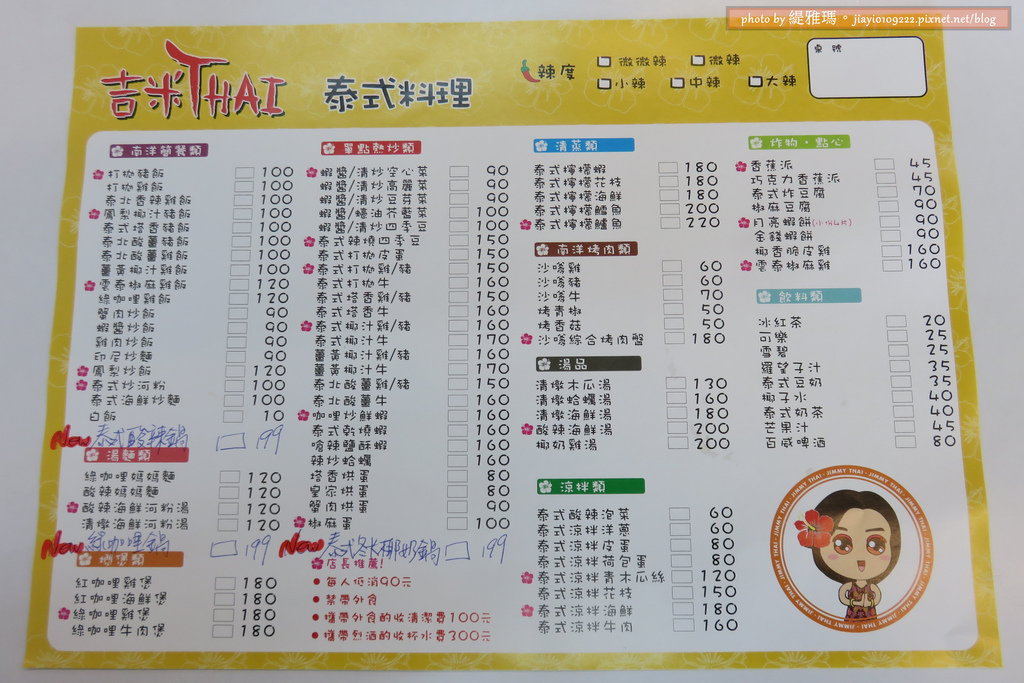 photo by 緹雅瑪。jiayio109222.pixnet.net/blog
吉米THAI
泰式料理
辣度
微微辣 微辣
小辣 中辣 大辣
桌號
南洋簡餐類
打拋豬飯 100
打拋雞飯 100
泰北香辣雞飯 100
鳳梨椰汁豬飯 100
泰式塔香豬飯 100
泰北酸薑豬飯 100
泰北酸薑雞飯 100
薑黃椰汁雞飯 100
雲泰椒麻雞飯 120
綠咖哩雞飯 120
蟹肉炒飯 90
蝦醬炒飯 90
雞肉炒飯 90
印尼炒麵 90
鳳梨炒飯 120
泰式炒河粉 100
泰式海鮮炒麵 100
白飯 10
New 泰式酸辣鍋 199
湯麵類
綠咖哩媽媽麵 120
酸辣媽媽麵 120
酸辣海鮮河粉湯 120
清燉海鮮河粉湯 120
New 綠咖哩鍋 199
紅咖哩雞煲 180
紅咖哩海鮮煲 180
綠咖哩雞煲 180
綠咖哩牛肉煲 180
單點熱炒類
蝦醬/清炒空心菜 90
蝦醬/清炒高麗菜 90
蝦醬/清炒豆芽菜 90
蝦醬/蠔油芥藍菜 100
蝦醬/清炒四季豆 100
泰式辣燒四季豆 150
泰式打拋皮蛋 150
泰式打拋雞/豬 150
泰式打拋牛 160
泰式塔香雞/豬 150
泰式塔香牛 160
泰式椰汁雞/豬 160
泰式椰汁牛 170
薑黃椰汁雞/豬 160
薑黃椰汁牛 170
泰北酸薑雞/豬 150
咖哩炒鮮蝦 160
泰式乾燒蝦 160
嗆辣鹽酥蝦 160
辣炒蛤蠣 160
塔香烘蛋 80
皇家烘蛋 80
蟹肉烘蛋 90
椒麻蛋 100
New 泰式冬椰奶鍋 199
店長推薦!
每人低消90元
禁帶外食
攜帶外食酌收清潔費100元
攜帶烈酒酌收杯水費300元
清蒸類
泰式檸檬蝦 180
泰式檸檬花枝 180
泰式檸檬海鮮 180
泰式檸檬鱸魚 200
泰式檸檬鱸魚 220
南洋烤肉類
沙嗲雞 60
沙嗲豬 60
沙嗲牛 70
烤青椒 50
烤香菇 50
沙嗲綜合烤肉盤 180
湯品
清燉木瓜湯 130
清燉蛤蠣湯 160
清燉海鮮湯 180
酸辣海鮮湯 200
椰奶雞湯 200
涼拌類
泰式酸辣泡菜 60
泰式涼拌洋蔥 60
泰式涼拌皮蛋 80
泰式涼拌荷包蛋 80
泰式涼拌青木瓜絲 120
泰式涼拌花枝 150
泰式涼拌海鮮 180
泰式涼拌牛肉 160
炸物．點心
香蕉派 45
巧克力香蕉派 45
泰式炸豆腐 70
椒麻豆腐 90
月亮蝦餅(小份4片) 90
金錢蝦餅 90
椰香脆皮雞 160
雲泰椒麻雞 160
飲料類
冰紅茶 20
可樂 25
雪碧 25
羅望子汁 35
泰式豆奶 35
椰子水 40
泰式奶茶 40
芒果汁 45
百威啤酒 80
JIMMY THAI